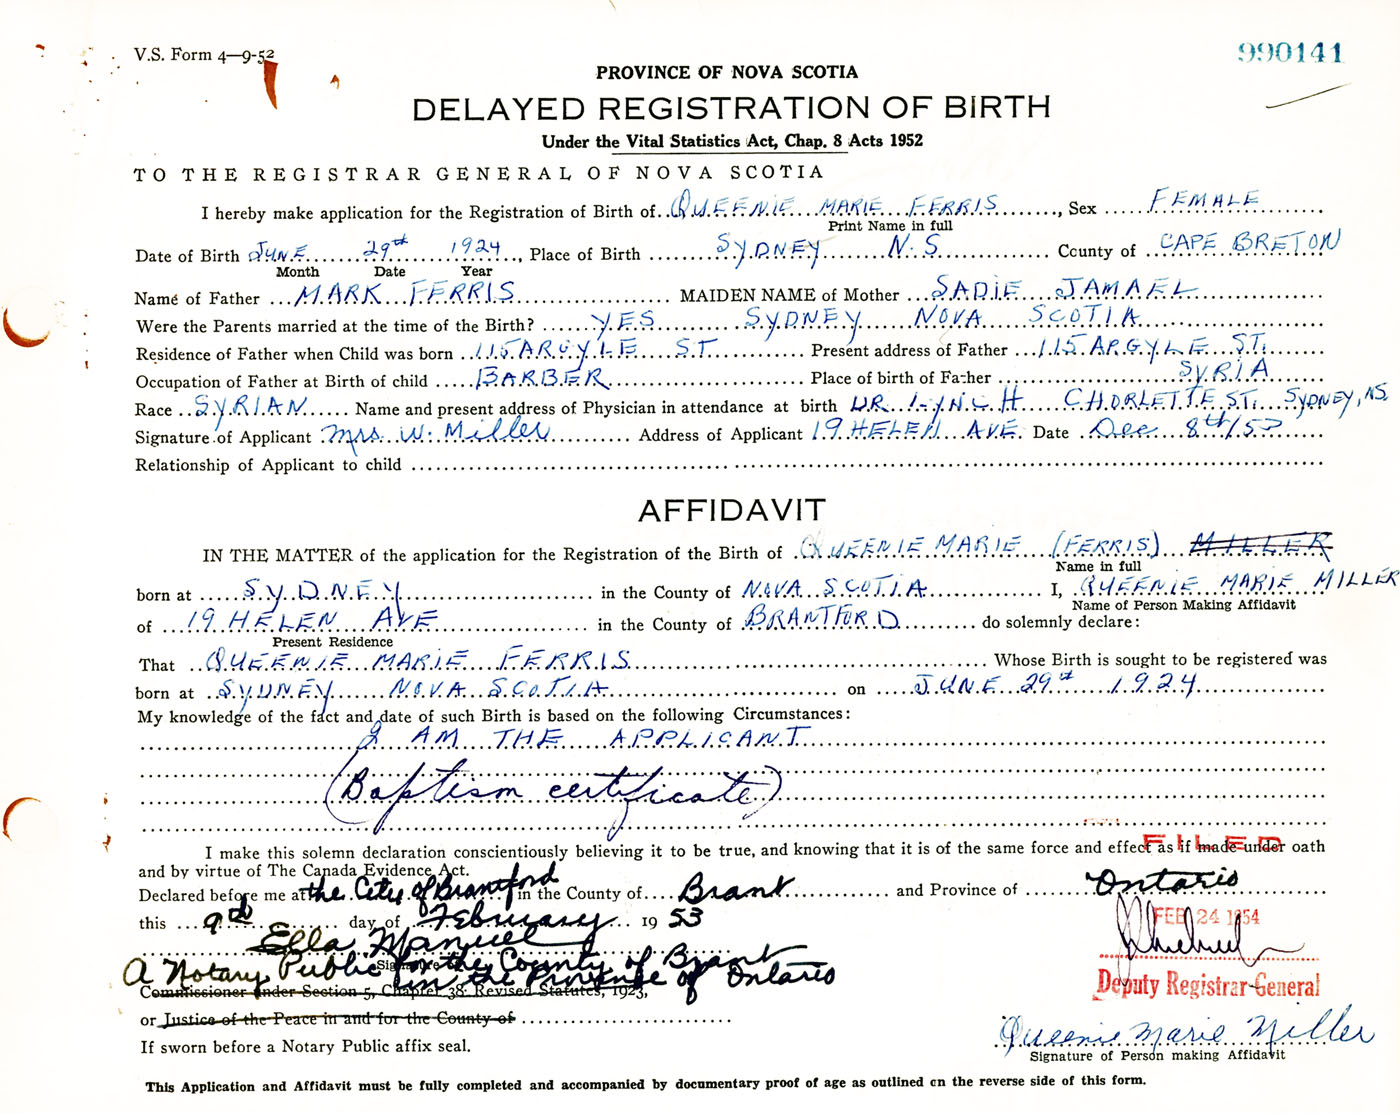 V.S. Form 4—9-52
990141
PROVINCE OF NOVA SCOTIA
DELAYED REGISTRATION OF BIRTH
Under the Vital Statistics Act, Chap. 8 Acts 1952
TO THE REGISTRAR GENERAL OF NOVA SCOTIA
I hereby make application for the Registration of Birth of QUEENIE MARIE FERRIS, Sex FEMALE
Print Name in full
Date of Birth JUNE 29th 1924, Place of Birth SYDNEY N.S County of CAPE BRETON
Month Date Year
Name of Father MARK FERRIS MAIDEN NAME of Mother SADIE JAMAEL
Were the Parents married at the time of the Birth? YES SYDNEY NOVA SCOTIA
Residence of Father when Child was born 115 ARGYLE ST. Present address of Father 115 ARGYLE ST.
Occupation of Father at Birth of child BARBER Place of birth of Father SYRIA
Race SYRIAN Name and present address of Physician in attendance at birth DR LYNCH CHORLETTE ST. SYDNEY, NS.
Signature of Applicant Mrs. W. Miller Address of Applicant 19 HELEN AVE. Date Dec 8th/52
Relationship of Applicant to child
AFFIDAVIT
IN THE MATTER of the application for the Registration of the Birth of QUEENIE MARIE (FERRIS) MILLER
Name in full
born at SYDNEY in the County of NOVA SCOTIA I, QUEENIE MARIE MILLER
Name of Person Making Affidavit
of 19 HELEN AVE in the County of BRANTFORD do solemnly declare:
Present Residence
That QUEENIE MARIE FERRIS Whose Birth is sought to be registered was
born at SYDNEY NOVA SCOTIA on JUNE 29th 1924
My knowledge of the fact and date of such Birth is based on the following Circumstances:
I AM THE APPLICANT
(Baptism certificate)
FILED
I make this solemn declaration conscientiously believing it to be true, and knowing that it is of the same force and effect as if made under oath
and by virtue of The Canada Evidence Act.
Declared before me at the City of Brantford in the County of Brant and Province of Ontario
this 9th day of February 1953
FEB 24 1954
Ella Manuel
A Notary Public for the County of Brant
in the Province of Ontario
Commissioner under Section 5, Chapter 38: Revised Statutes, 1923,
Deputy Registrar-General
or Justice of the Peace in and for the County of
Queenie Marie Miller
If sworn before a Notary Public affix seal.
Signature of Person making Affidavit
This Application and Affidavit must be fully completed and accompanied by documentary proof of age as outlined on the reverse side of this form.